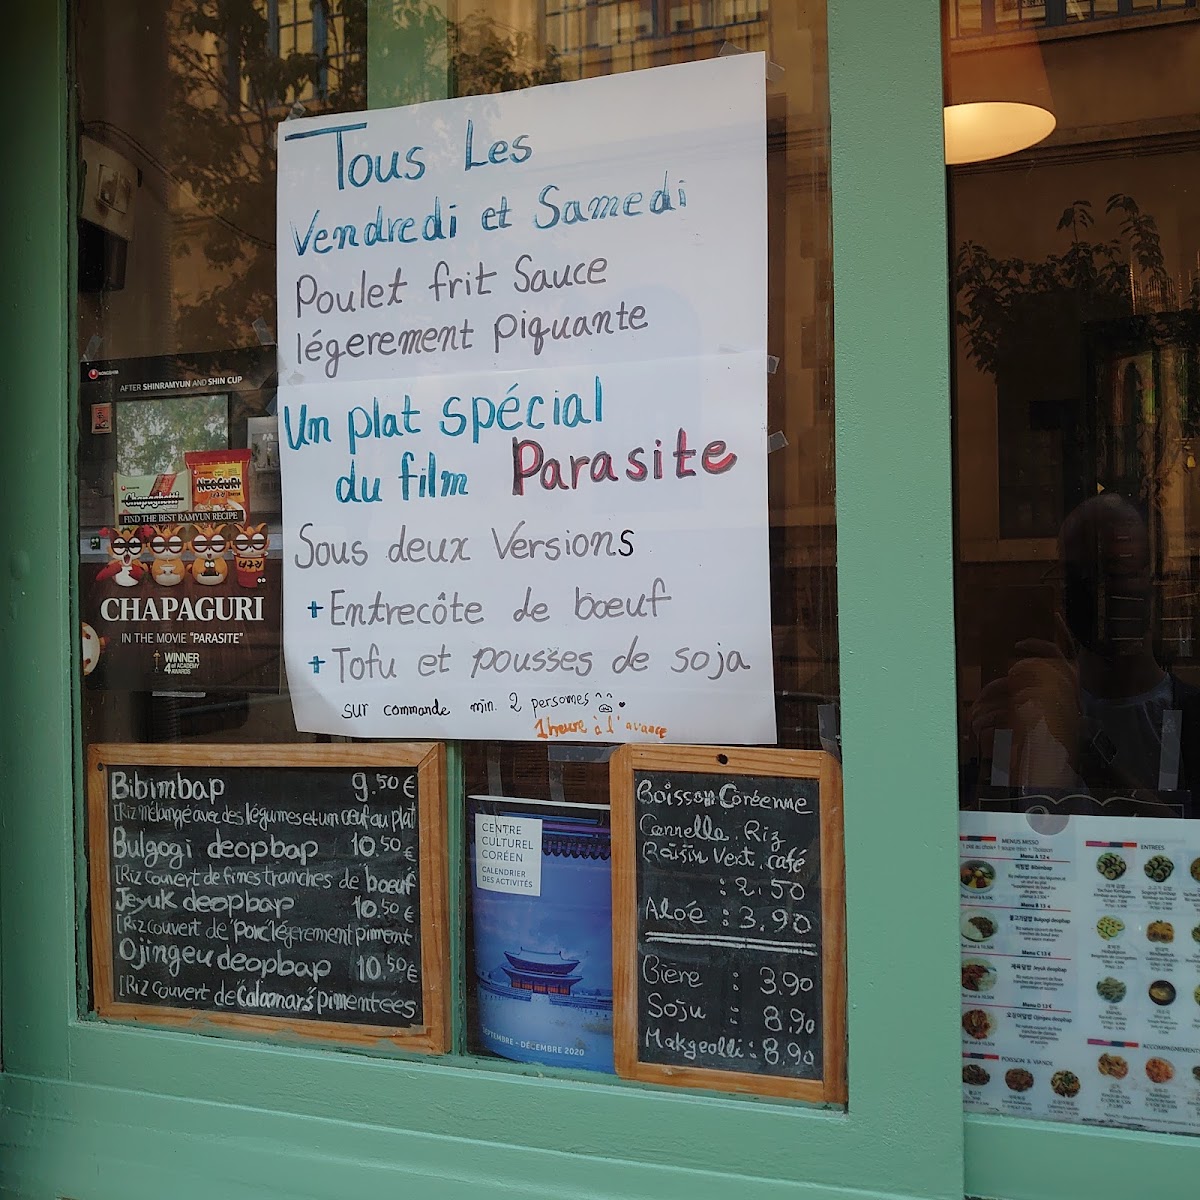 Tous Les
Vendredi et Samedi
Poulet frit Sauce
légerement piquante
Un plat spécial
du film Parasite
Sous deux Versions
+ Entrecôte de bœuf
+ Tofu et pousses de soja
sur commande min. 2 personnes
1 heure à l'avance
NONGSHIM
AFTER SHINRAMYUN AND SHIN CUP
Chapaghetti
NEOGURI
FIND THE BEST RAMYUN RECIPE
CHAPAGURI
IN THE MOVIE "PARASITE"
WINNER
4 of ACADEMY
AWARDS
Bibimbap 9.50€
[Riz mélangé avec des légumes et un œuf au plat
Bulgogi deopbap 10.50€
[Riz couvert de fines tranches de bœuf
Jeyuk deopbap 10.50€
[Riz couvert de Porc légerement piment
Ojingeu deopbap 10.50€
[Riz couvert de Calamars pimentees
CENTRE
CULTUREL
CORÉEN
CALENDRIER
DES ACTIVITÉS
SEPTEMBRE - DÉCEMBRE 2020
Boisson Coréenne
Cannelle. Riz
Raisin Vert. café
: 2.50
Aloé : 3.90
Bière : 3.90
Soju : 8.90
Makgeolli : 8.90
MENUS MISSO
Menu A 12 €
비빔밥 Bibimbap
Menu B 13 €
불고기덮밥 Bulgogi deopbap
Menu C 13 €
제육덮밥 Jeyuk deopbap
Menu D 13 €
오징어덮밥 Ojingeu deopbap
POISSON & VIANDE
ENTREES
ACCOMPAGNEMENTS